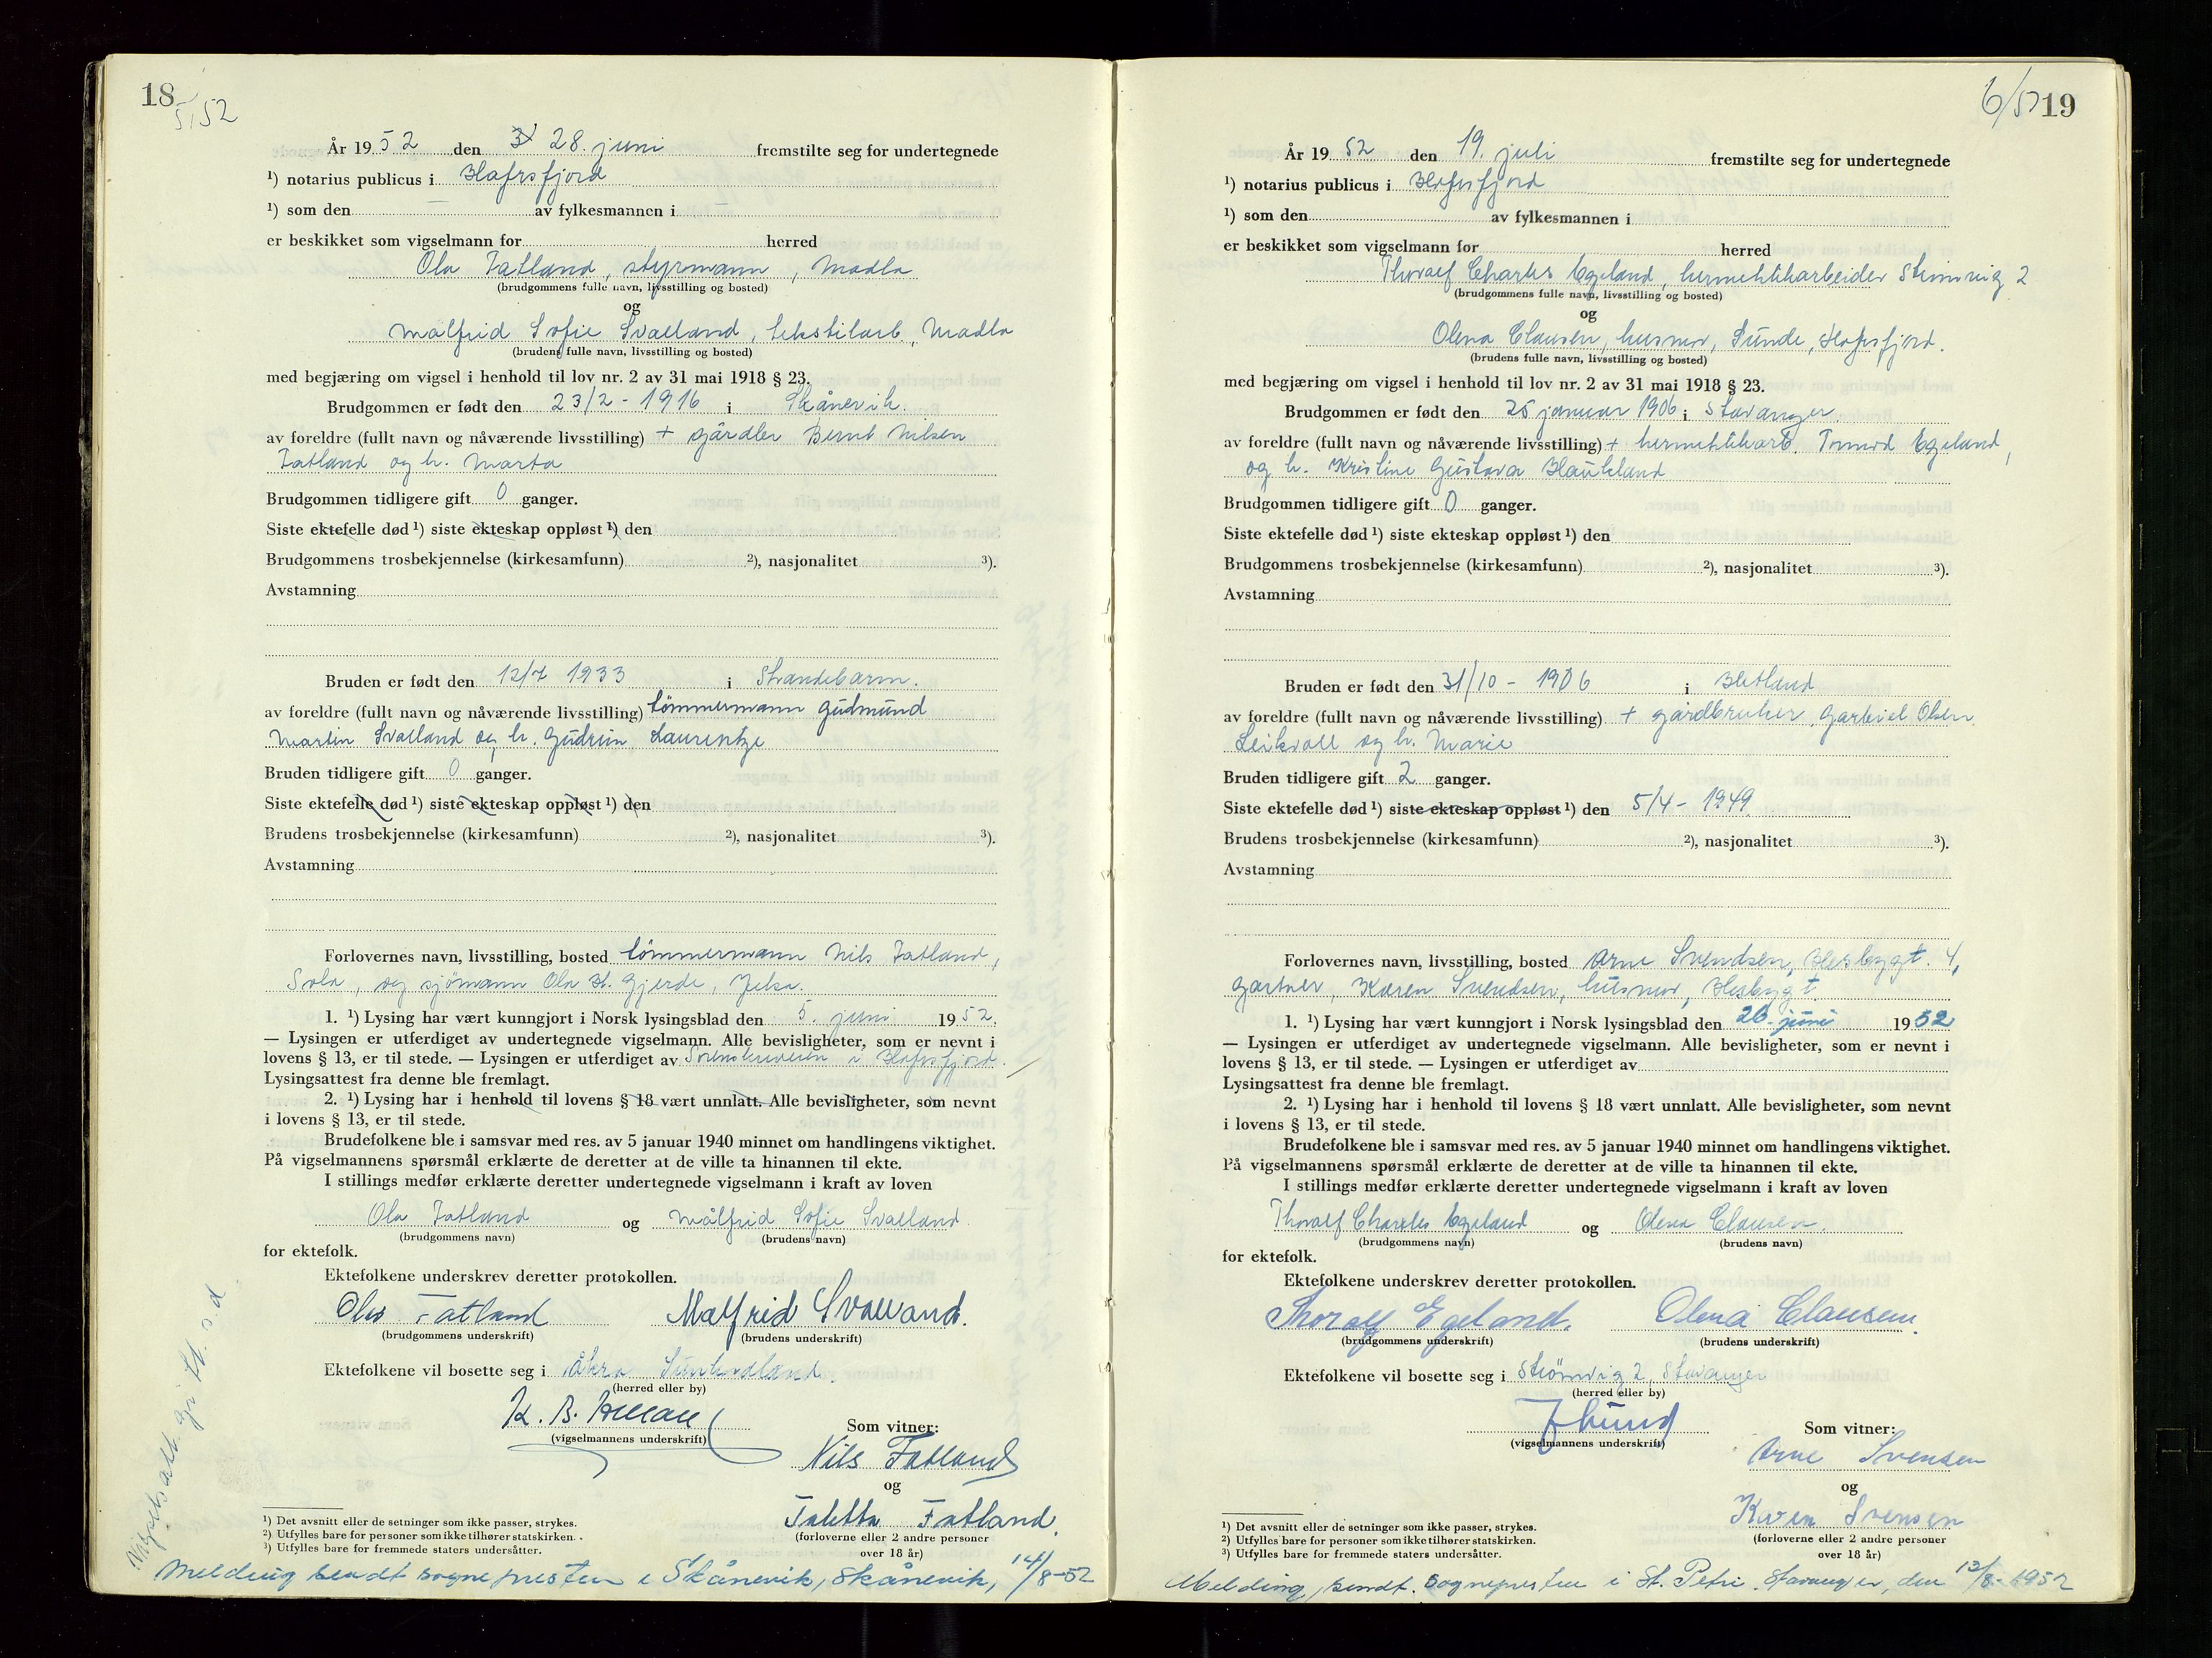 18
5/52
År 1952 den 28. juni fremstilte seg for undertegnede
¹) notarius publicus i Hafrsfjord
¹) som den av fylkesmannen i
er beskikket som vigselmann for herred
Ola Fatland, styrmann, Madla
(brudgommens fulle navn, livsstilling og bosted)
og
Målfrid Sofie Svælland, tekstilarb., Madla
(brudens fulle navn, livsstilling og bosted)
med begjæring om vigsel i henhold til lov nr. 2 av 31 mai 1918 § 23.
Brudgommen er født den 23/2 - 1916 i Skånevik.
av foreldre (fullt navn og nåværende livsstilling) + gårdbr Bernt Nilsen
Fatland og h. Marta
Brudgommen tidligere gift 0 ganger.
Siste ektefelle død ¹) siste ekteskap oppløst ¹) den
Brudgommens trosbekjennelse (kirkesamfunn) ²), nasjonalitet ³).
Avstamning
Bruden er født den 12/7 1933 i Strandebarm.
av foreldre (fullt navn og nåværende livsstilling) tömmermann Gudmund
Martin Svælland og h. Gudrun Laurentze
Bruden tidligere gift 0 ganger.
Siste ektefelle død ¹) siste ekteskap oppløst ¹) den
Brudens trosbekjennelse (kirkesamfunn) ²), nasjonalitet ³).
Avstamning
Forlovernes navn, livsstilling, bosted tömmermann Nils Fatland,
Sola, og sjömann Ola H. Gjerde, Jelsa.
1. ¹) Lysing har vært kunngjort i Norsk lysingsblad den 5. juni 1952.
— Lysingen er utferdiget av undertegnede vigselmann. Alle bevisligheter, som er nevnt i
lovens § 13, er til stede. — Lysingen er utferdiget av Sorenskriveren i Hafrsfjord.
Lysingsattest fra denne ble fremlagt.
2. ¹) Lysing har i henhold til lovens § 18 vært unnlatt. Alle bevisligheter, som nevnt
i lovens § 13, er til stede.
Brudefolkene ble i samsvar med res. av 5 januar 1940 minnet om handlingens viktighet.
På vigselmannens spørsmål erklærte de deretter at de ville ta hinannen til ekte.
I stillings medfør erklærte deretter undertegnede vigselmann i kraft av loven
Ola Fatland og Målfrid Sofie Svælland.
(brudgommens navn) (brudens navn)
for ektefolk.
Ektefolkene underskrev deretter protokollen.
Ola Fatland Målfrid Svælland.
(brudgommens underskrift) (brudens underskrift)
Ektefolkene vil bosette seg i Åkra Sunhodland.
(herred eller by)
K. B.
(vigselmannens underskrift)
Som vitner:
Nils Fatland
og
Taletta Fatland.
(forloverne eller 2 andre personer
over 18 år)
¹) Det avsnitt eller de setninger som ikke passer, strykes.
²) Utfylles bare for personer som ikke tilhører statskirken.
³) Utfylles bare for fremmede staters undersåtter.
Vigselsatt. gitt s.d.
Melding sendt sognepresten i Skånevik, Skånevik, 14/8-52
6/52
19
År 1952 den 19. juli fremstilte seg for undertegnede
¹) notarius publicus i Hafrsfjord
¹) som den av fylkesmannen i
er beskikket som vigselmann for herred
Thoralf Charles Egeland, hermetikkarbeider Strömvig 2
(brudgommens fulle navn, livsstilling og bosted)
og
Olena Clausen, husmor, Sunde, Hafrsfjord.
(brudens fulle navn, livsstilling og bosted)
med begjæring om vigsel i henhold til lov nr. 2 av 31 mai 1918 § 23.
Brudgommen er født den 25 januar 1906 i Stavanger
av foreldre (fullt navn og nåværende livsstilling) + hermetikkarb. Tormod Egeland,
og h. Kristine Gustava Haukland
Brudgommen tidligere gift 0 ganger.
Siste ektefelle død ¹) siste ekteskap oppløst ¹) den
Brudgommens trosbekjennelse (kirkesamfunn) ²), nasjonalitet ³).
Avstamning
Bruden er født den 31/10 - 1906 i Hetland
av foreldre (fullt navn og nåværende livsstilling) + gårdbruker Gabriel Olsen
Leikvoll og h. Marie
Bruden tidligere gift 2 ganger.
Siste ektefelle død ¹) siste ekteskap oppløst ¹) den 5/4 - 1949.
Brudens trosbekjennelse (kirkesamfunn) ²), nasjonalitet ³).
Avstamning
Forlovernes navn, livsstilling, bosted Arne Svendsen, Hesbygt. 4,
gartner, Karen Svendsen, husmor, Hesbygt.
1. ¹) Lysing har vært kunngjort i Norsk lysingsblad den 26. juni 1952
— Lysingen er utferdiget av undertegnede vigselmann. Alle bevisligheter, som er nevnt i
lovens § 13, er til stede. — Lysingen er utferdiget av
Lysingsattest fra denne ble fremlagt.
2. ¹) Lysing har i henhold til lovens § 18 vært unnlatt. Alle bevisligheter, som nevnt
i lovens § 13, er til stede.
Brudefolkene ble i samsvar med res. av 5 januar 1940 minnet om handlingens viktighet.
På vigselmannens spørsmål erklærte de deretter at de ville ta hinannen til ekte.
I stillings medfør erklærte deretter undertegnede vigselmann i kraft av loven
Thoralf Charles Egeland og Olena Clausen.
(brudgommens navn) (brudens navn)
for ektefolk.
Ektefolkene underskrev deretter protokollen.
Thoralf Egeland. Olena Clausen.
(brudgommens underskrift) (brudens underskrift)
Ektefolkene vil bosette seg i Strömvig 2, Stavanger
(herred eller by)
(vigselmannens underskrift)
Som vitner:
Arne Svensen
og
Karen Svensen
(forloverne eller 2 andre personer
over 18 år)
¹) Det avsnitt eller de setninger som ikke passer, strykes.
²) Utfylles bare for personer som ikke tilhører statskirken.
³) Utfylles bare for fremmede staters undersåtter.
Melding sendt. Sognepresten i St. Petri. Stavanger, den 13/8.-1952